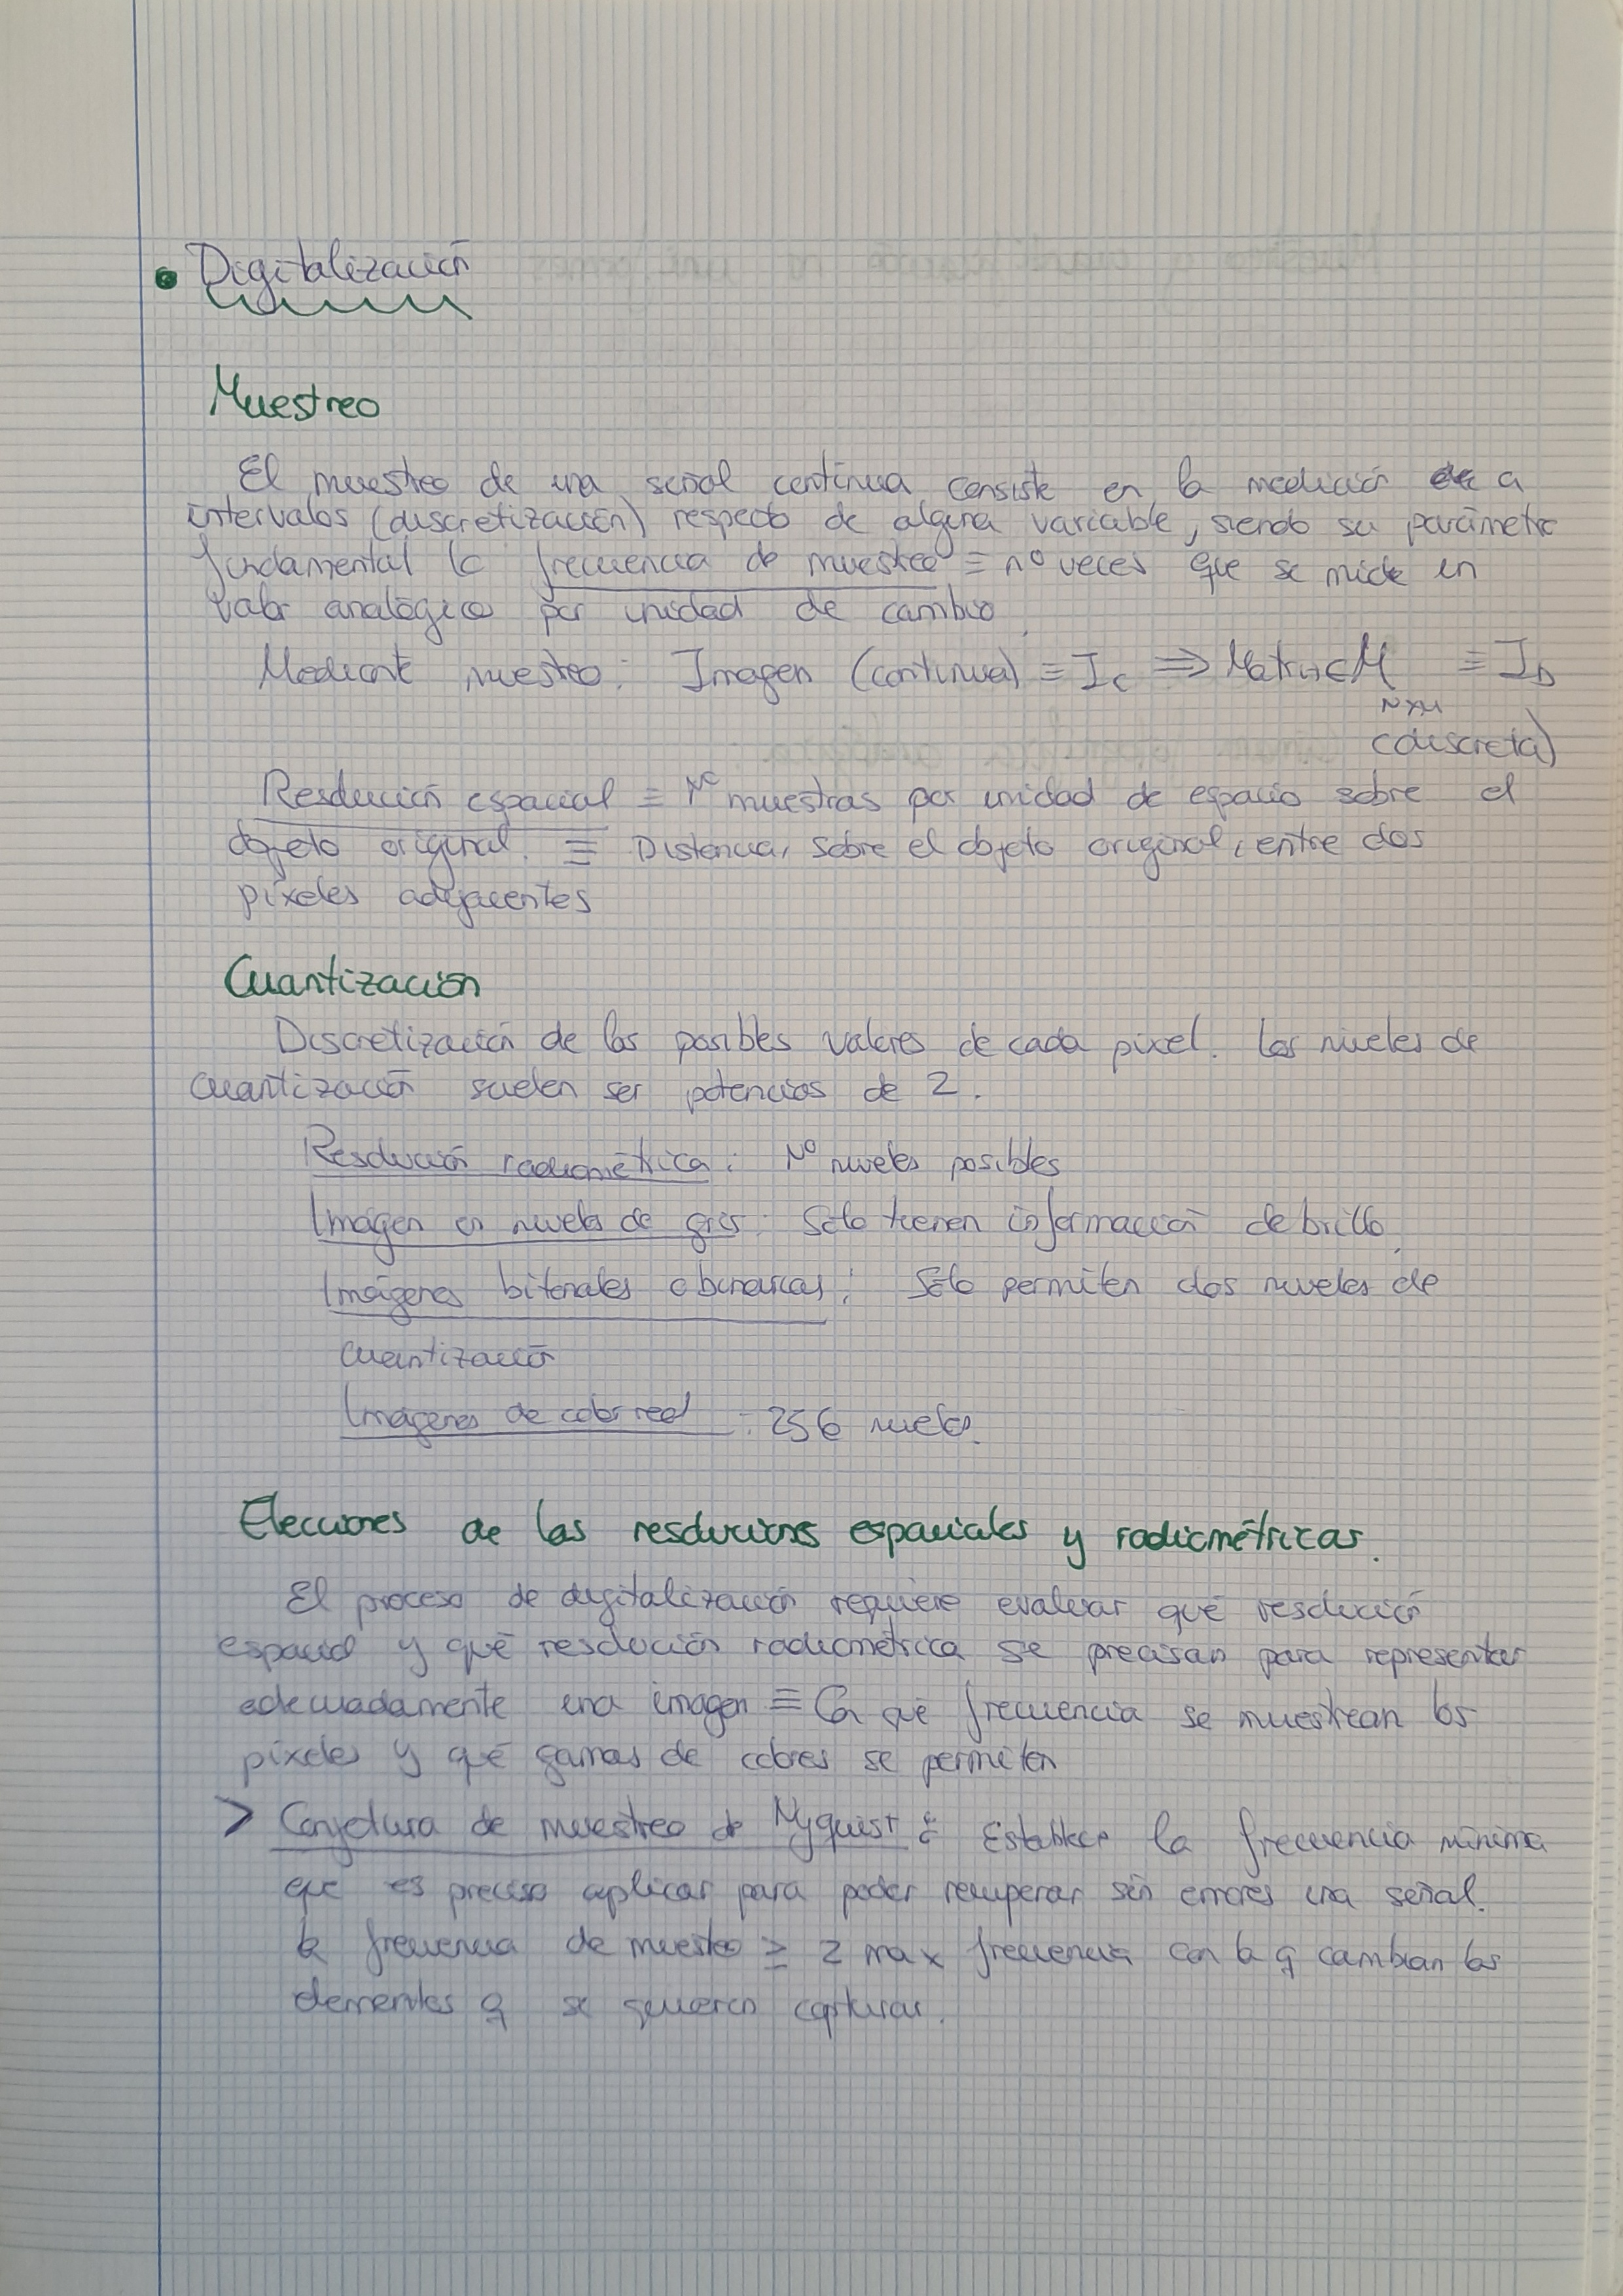 Digitalización
Muestreo
El muestreo de una señal continua consiste en la medición a
intervalos (discretización) respecto de alguna variable, siendo su parámetro
fundamental la frecuencia de muestreo ≡ nº veces que se mide un
valor analógico por unidad de cambio
Mediante muestreo: Imagen (continua) ≡ I_C ⇒ Matriz ∈ M_{N×M} ≡ I_D
(discreta)
Resolución espacial ≡ Nº muestras por unidad de espacio sobre el
objeto original. ≡ Distancia, sobre el objeto original, entre dos
píxeles adyacentes
Cuantización
Discretización de los posibles valores de cada pixel. Los niveles de
cuantización suelen ser potencias de 2.
Resolución radiométrica: Nº niveles posibles
Imágen en niveles de gris: Sólo tienen información de brillo.
Imágenes bitonales o binarias: Sólo permiten dos niveles de
cuantización
Imágenes de color real: 256 niveles.
Elecciones de las resoluciones espaciales y radiométricas.
El proceso de digitalización requiere evaluar qué resolución
espacial y qué resolución radiométrica se precisan para representar
adecuadamente una imagen ≡ Con qué frecuencia se muestrean los
píxeles y qué gamas de colores se permiten
> Conjetura de muestreo de Nyquist: Establece la frecuencia mínima
que es preciso aplicar para poder recuperar sin errores una señal.
la frecuencia de muestreo ≥ 2 max frecuencia con la q cambian los
elementos q se quieren capturar.